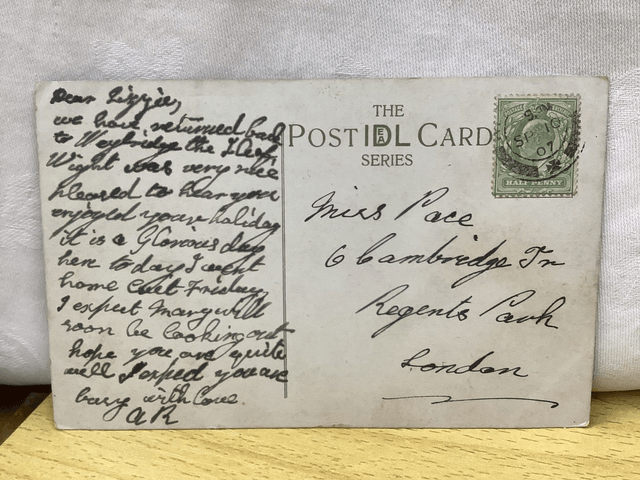 Dear Lizzie,
we have returned back
to Weybridge the I of
Wight was very nice
pleased to hear you
enjoyed your holiday
it is a Glorious day
here to day I went
home last Friday,
I expect Mary will
soon be looking out
hope you are quite
well I expect you are
busy with love
AR
THE
POST IDEAL CARD
SERIES
HALF PENNY
SP 16
07
Miss Pace
6 Cambridge Tr
Regents Park
London